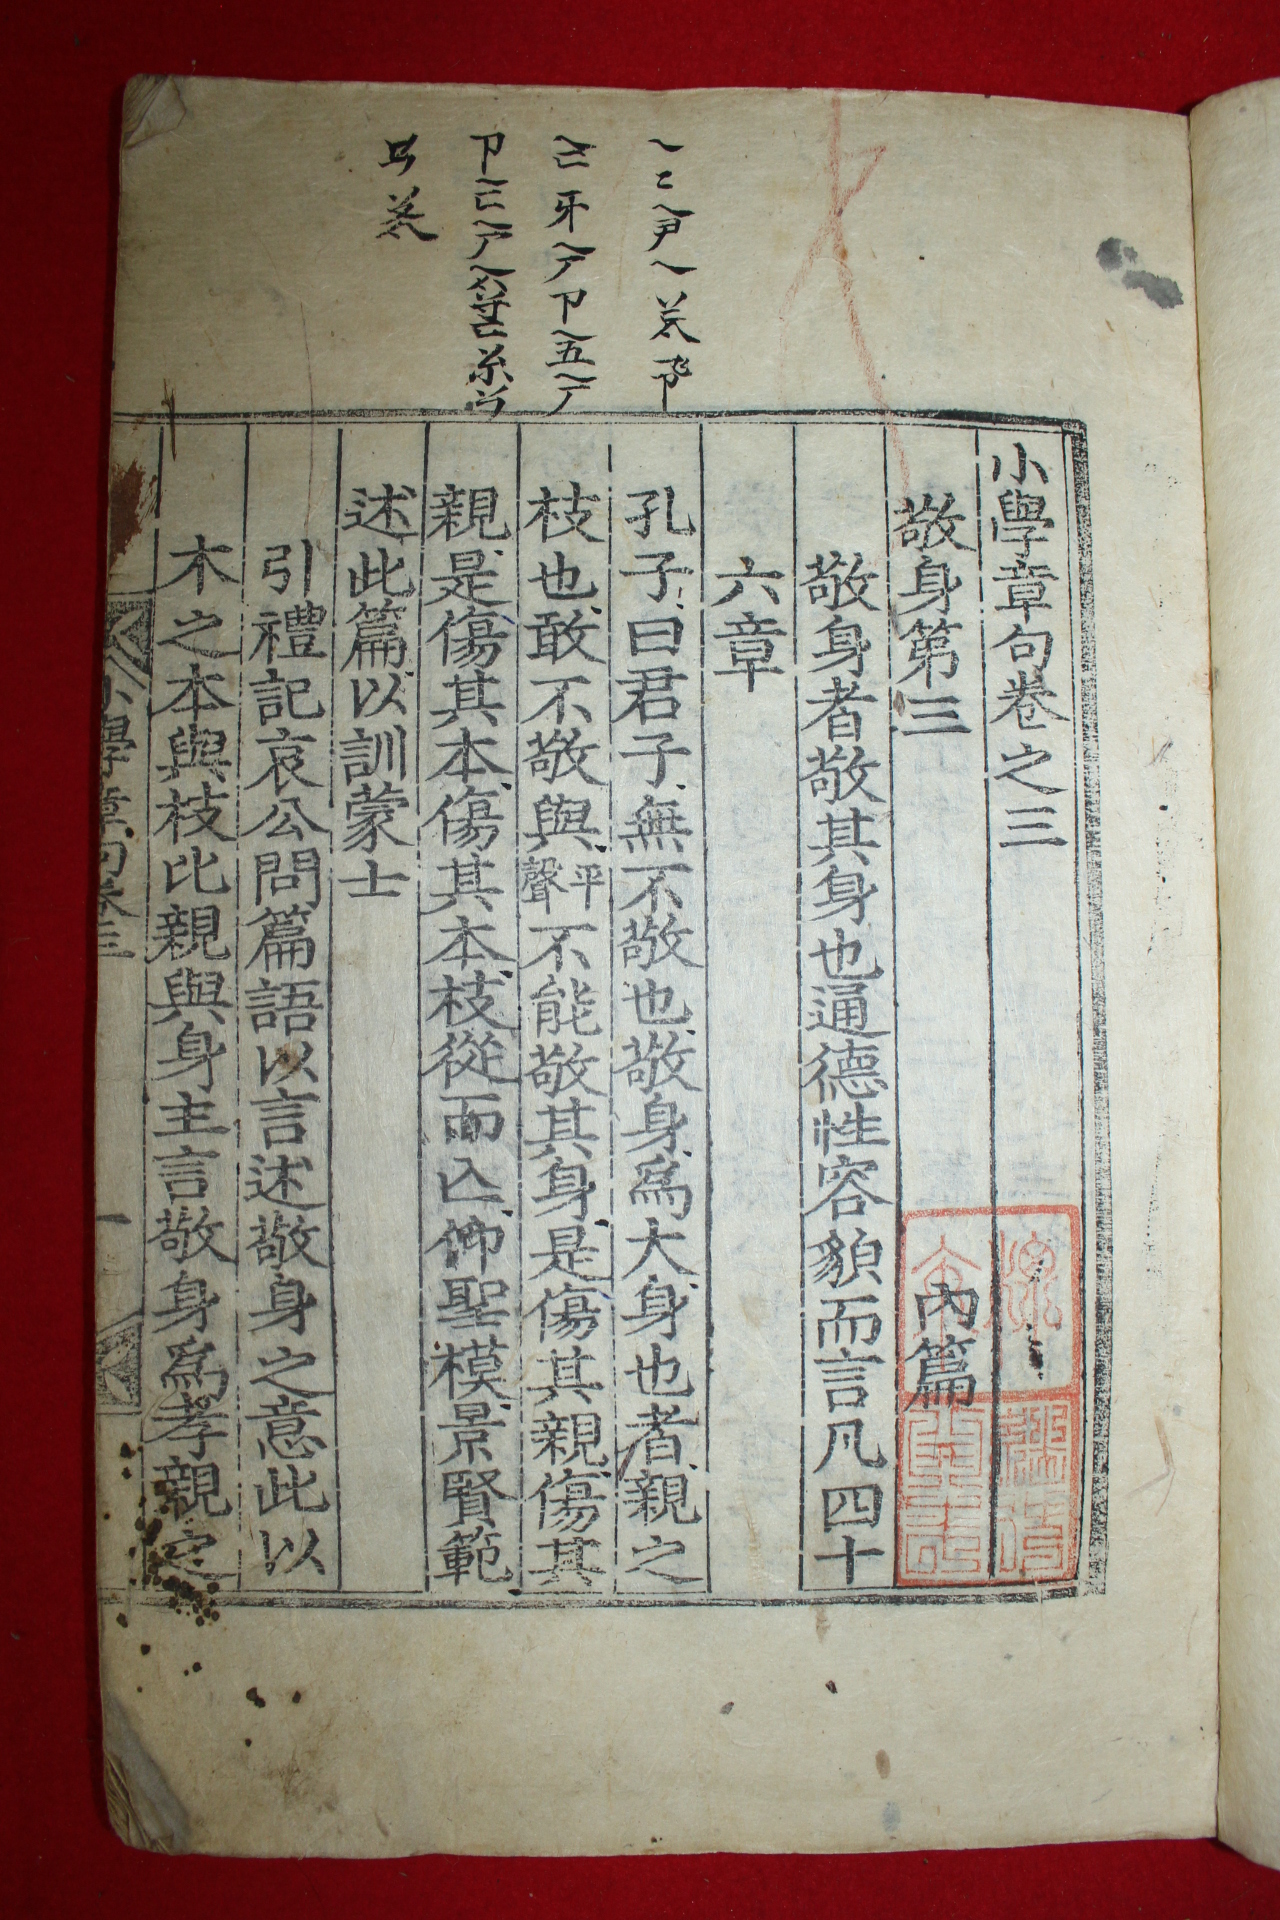 小學章句卷之三
敬身第三
內篇
敬身者敬其身也通德性容貌而言凡四十
六章
孔子曰君子無不敬也敬身爲大身也者親之
枝也敢不敬與平聲不能敬其身是傷其親傷其
親是傷其本傷其本枝從而亡仰聖模景賢範
述此篇以訓蒙士
引禮記哀公問篇語以言述敬身之意此以
木之本與枝比親與身主言敬身爲孝親之
小學章句卷三
一